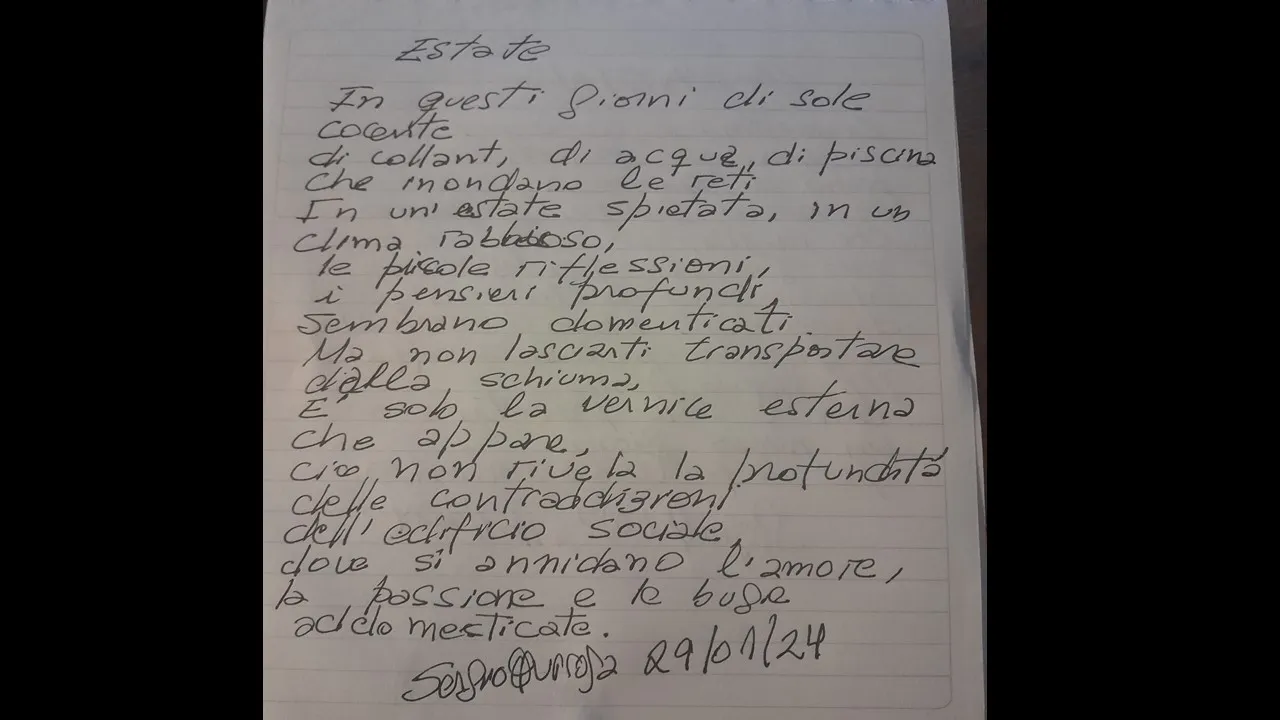 Estate
In questi giorni di sole
cocente
di collant, di acqua, di piscina
che inondano le reti
In un'estate spietata, in un
clima rabbioso,
le piccole riflessioni,
i pensieri profondi,
sembrano domenticati.
Ma non lasciarti transportare
dalla schiuma,
E' solo la vernice esterna
che appare,
ciò non rivela la profundità
delle contraddizioni
dell'edificio sociale,
dove si annidano l'amore,
la passione e le bugie
addomesticate.
29/01/24